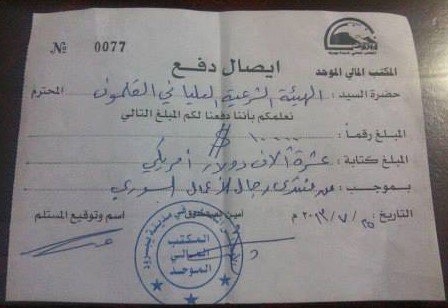 № 0077
المكتب المالي الموحد
ايصال دفع
حضرة السيد: الهيئة الشرعية العليا في القلمون المحترم
نعلمكم بأننا دفعنا لكم المبلغ التالي
المبلغ رقماً: ١٠٠٠٠ $
المبلغ كتابة: عشرة آلاف دولار أمريكي
بموجب: من منتدى رجال الأعمال السوري
التاريخ: ٢٥ / ٧ / ٢٠١٣ م
أمين الصندوق
اسم وتوقيع المستلم
المكتب
المالي
الموحد
في مدينة يبرود